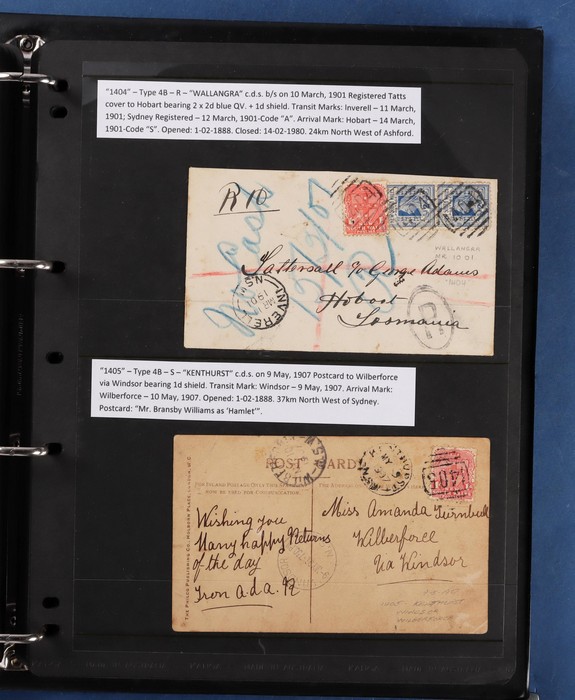 "1404" – Type 4B – R – "WALLANGRA" c.d.s. b/s on 10 March, 1901 Registered Tatts
cover to Hobart bearing 2 x 2d blue QV. + 1d shield. Transit Marks: Inverell – 11 March,
1901; Sydney Registered – 12 March, 1901-Code "A". Arrival Mark: Hobart – 14 March,
1901-Code "S". Opened: 1-02-1888. Closed: 14-02-1980. 24km North West of Ashford.
R 10
12/3/01
WALLANGRA
MR 10 01
Tattersall c/o George Adams
Hobart
Tasmania
INVERELL
MAR 11
1901
N.S.W
R
"1405" – Type 4B – S – "KENTHURST" c.d.s. on 9 May, 1907 Postcard to Wilberforce
via Windsor bearing 1d shield. Transit Mark: Windsor – 9 May, 1907. Arrival Mark:
Wilberforce – 10 May, 1907. Opened: 1-02-1888. 37km North West of Sydney.
Postcard: "Mr. Bransby Williams as 'Hamlet'".
POST CARD
KENTHURST
MY 9
1907
N.S.W
1405
Miss Amanda Turnbull
Wilberforce
Via Windsor
Wishing you
Many happy Returns
of the day
from ada. R
1405 - KENTHURST
WINDSOR
WILBERFORCE